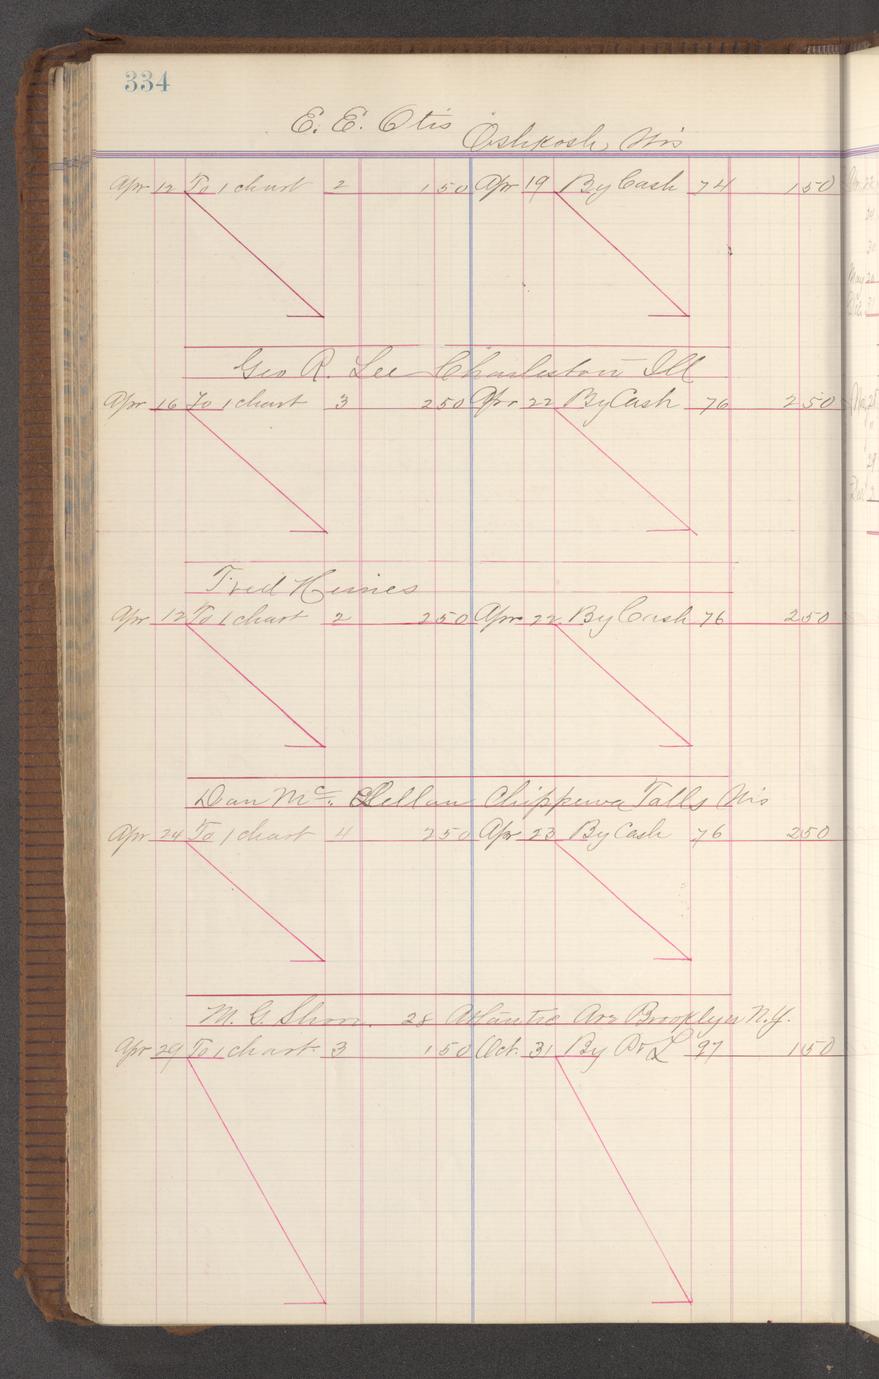 334
E. E. Otis Oshkosh, Wis
Apr 12 To 1 chart 2 1 50 Apr 19 By Cash 74 1 50
Geo R. Lee Charleston Ill
Apr 16 To 1 chart 3 2 50 Apr 22 By Cash 76 2 50
Fred Heines
Apr 12 To 1 chart 2 2 50 Apr 22 By Cash 76 2 50
Dan Mc. Clellan Chippewa Falls Wis
Apr 24 To 1 chart 4 2 50 Apr 23 By Cash 76 2 50
M. G. 28 Atlantic Ave Brooklyn N.Y.
Apr 29 To 1 chart 3 1 50 Oct. 31 By P & L 97 1 50